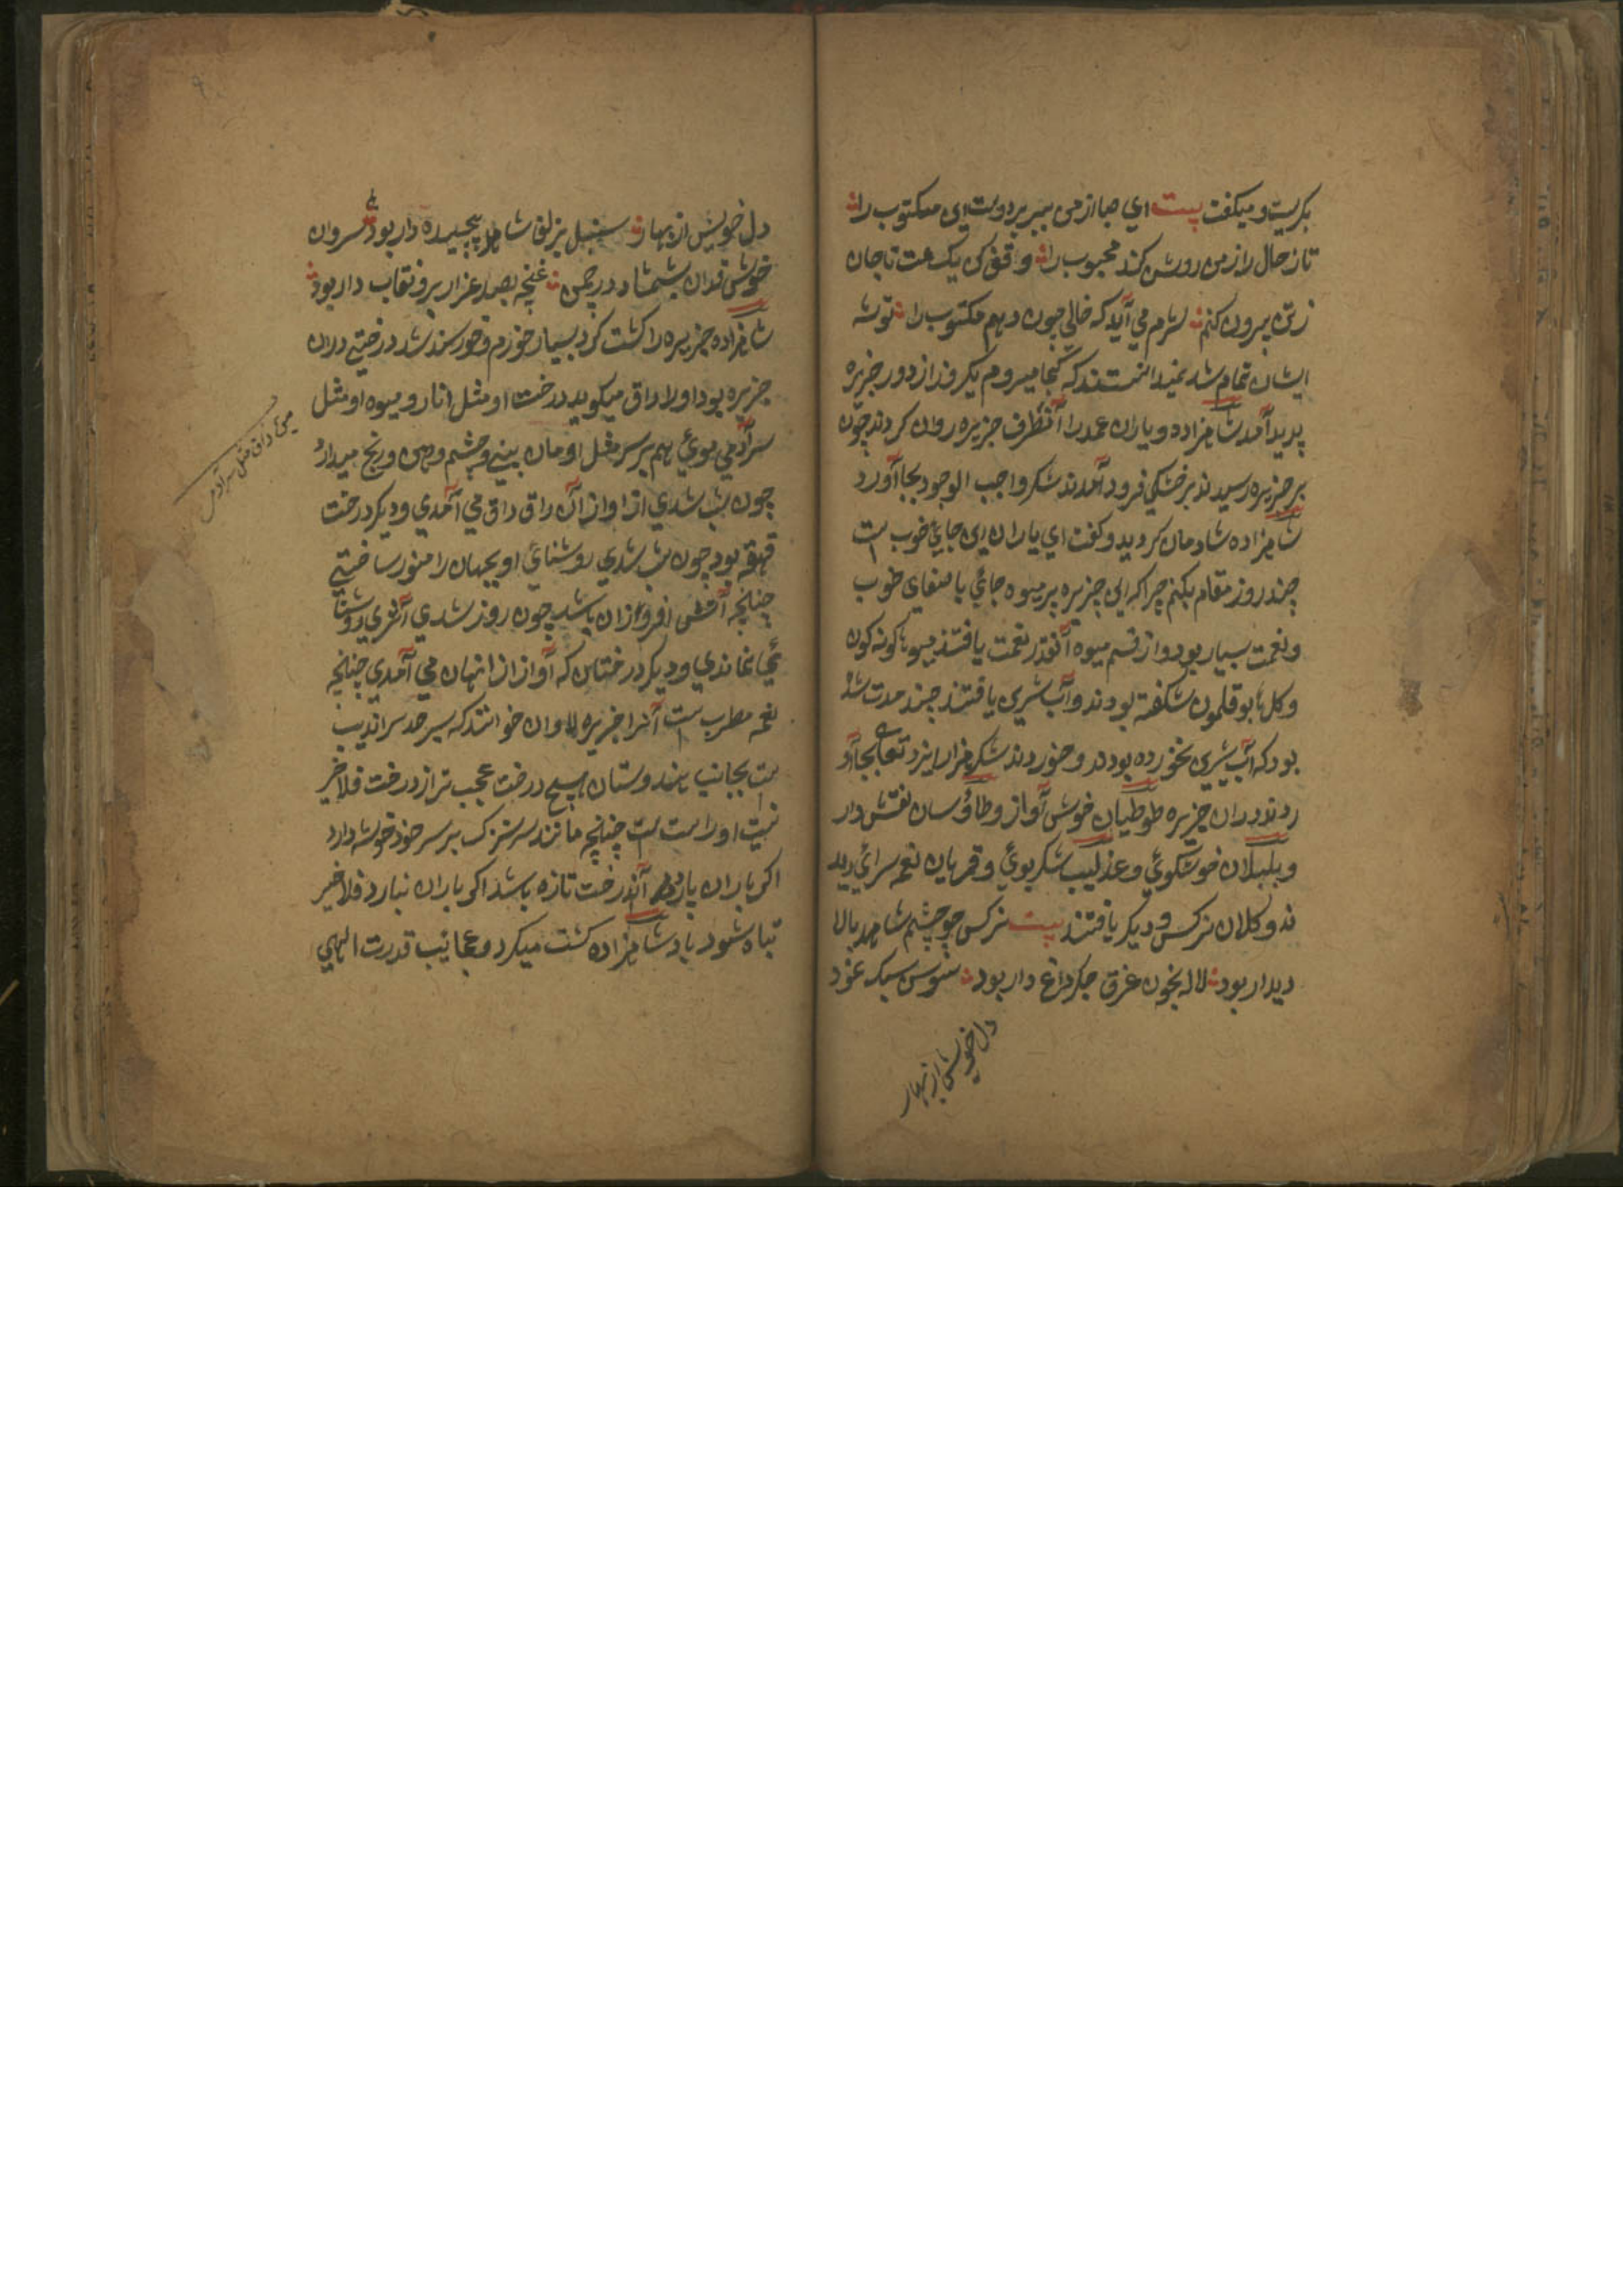 بکریست و میکفت بیت ای صبا از من ببر بر دوست این مکتوب را
تا ز حال زار من روشن کند محبوب را وقف کن یکساعت تا جان
ز تن بیرون کنم شرم می آید که خالی چون دهم مکتوب را توشه
ایشان تمام شد نمیدانستند که کجا میروم یکروز از دور جزیره
پدید آمد شاهزاده و یاران عمد را آنطرف جزیره روان کردند چون
بر جزیره رسیدند بر خشکی فرود آمدند شکر واجب الوجود بجا آورد
شاهزاده شادمان کردید و کفت ای یاران این جائ خوب است
چند روز مقام بکنم چرا که این جزیره پر میوه جائ با صفای خوب
و نعمت بسیار بود و از قسم میوه آنقدر نعمت یافتند میوها کونه کون
و کلها بوقلمون شکفته بودند و آب شیرین یافتند چند مدت شد
بود که آب شیرین نخورده بودند و خوردند شکر هزار ایزد تعالی بجا آو
ردند در ان جزیره طوطیان خوش آواز و طاؤسان نقش دار
و بلبلان خوشکوئ و عندلیب شکر بوئ و قمریان نغمه سرائ دید
ند و کلان نرکس و دیکر یافتند بیت نرکس چو چشم شاهد بالا
دیدار بود لاله بخون غرق جکر داغ دار بود سوسن سبک
دل خویش از بهار
دل خویش از بهار سنبل بزلف شاهد پیچیده دار بود سروان
خوش قدان شمشاد در چمن غنچه بصد عذار برو نقاب دار بود
شاهزاده جزیره را کشت کرد بسیار خورم و خورسند شد درختی دران
جزیره بود اولا داق میکویند درخت او مثل انار و میوه او مثل
سر آدمی موئ هم بر سر مثل او مان بینی و چشم و دهن و رنج میدارد
چون شب شدی از اواز آن داق داق می آمدی و دیکر درخت
قهقه بود چون شب شدی روشنائ او یجهان را منور ساختی
چنانچه آتش افروزان باشد چون روز شدی اثری روشنا
ئی نماندی و دیکر درختان که آواز از انهان می آمدی چنانچه
نغمه مطرب است آنرا جزیره خوانند که سرحد سراندیب
است بجانب هندوستان هیچ درخت عجب تر از درخت فلاخر
نیست او راست است چنانچه مانند سر بر سر خود خوشه دارد
اکر باران بارد آندرخت تازه باشد اکر باران نبارد فلاخر
تباه شود بادشاهزاده کشت میکرد و عجائب قدرت الهی
میوئ داق مثل سر آدمی